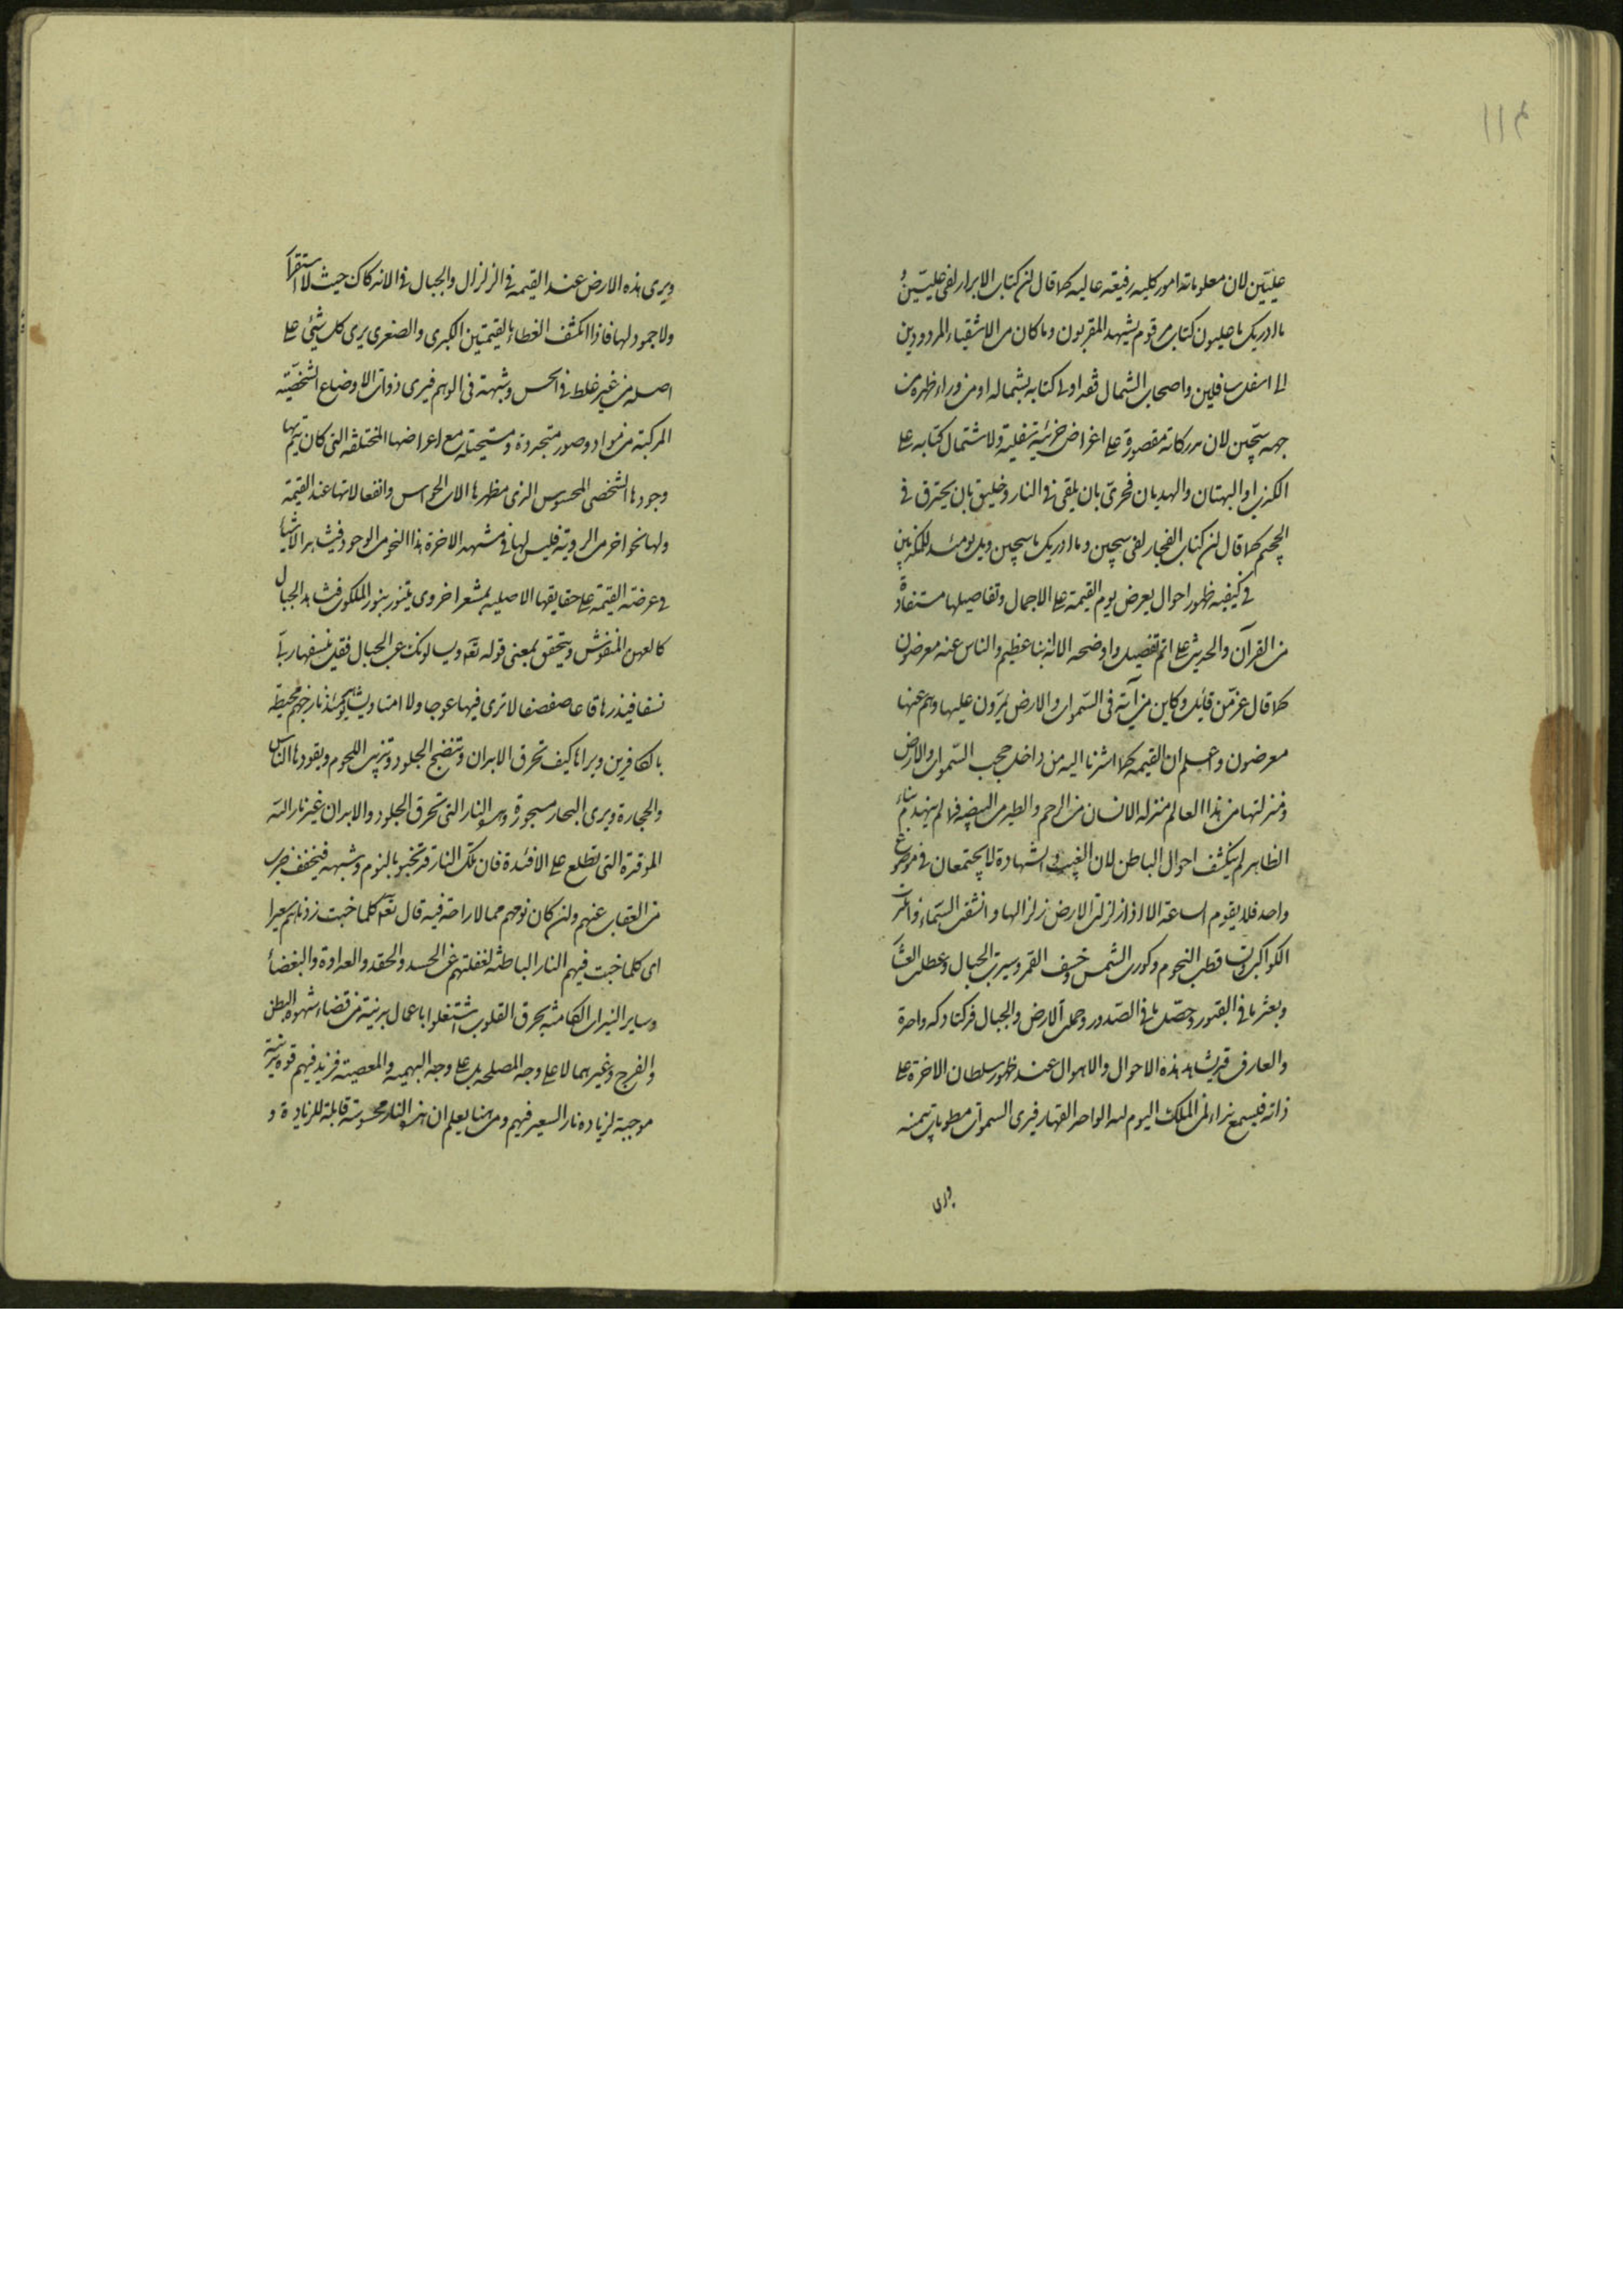 علیّین لان معلوماته امور کلیه رفیعته عالیه کما قال ان کتاب الابرار لفی علیّین و
ما ادریک ما علیون کتاب مرقوم یشهده المقربون و ما کان من الاشقیاء المردودین
الی اسفل سافلین واصحاب الشمال فقد اوتی کتابه بشماله او من وراء ظهره من
جهه سجّین لان مدرکاته مقصورة علی اغراض جزئیه سفلیة ولاشتمال کتابه علی
الکذب والبهتان والهدیان فحری بان یلقی فی النار وخلیق بان یحترق فی
الجحیم کما قال ان کتاب الفجار لفی سجین وما ادریک ما سجین ویل یومئذ للمکذبین
فی کیفیه ظهور احوال یعرض یوم القیمة علی الاجمال وتفاصیلها مستفادة
من القرآن والحدیث علی اتم تفصیل واوضحه الا انه نبأ عظیم والناس عنه معرضون
کما قال عزّ من قائل وکاین من آیة فی السّموات والارض یمرّون علیها وهم عنها
معرضون واعلم ان القیمه کما اشرنا الیه من داخل حجب السّموات والارض
ومنزلتها من هذا العالم منزله الانسان من الرحم والطیر من البیضه فما لم ینهدم بناء
الظاهر لم ینکشف احوال الباطن لان الغیب والشهادة لا یجتمعان فی موضع
واحد فلا یقوم الساعة الا اذا زلزلت الارض زلزالها وانشقت السّماء وانتثرت
الکواکب وتساقطت النجوم وکورت الشمس وخسف القمر وسیرت الجبال وعطلت العشار
وبعثر ما فی القبور وحصّل ما فی الصّدور وحملت الارض والجبال فدکتا دکه واحدة
والعارف قد یشاهد هذه الاحوال والاهوال عند ظهور سلطان الاخرة علی
ذاته فیسمع نداء لمن الملک الیوم لله الواحد القهار فیری السموات مطویات بیمینه
ویری هذه الارض عند القیمه فی الزلزال والجبال فی الاندکاک حیث لا استقرار
ولا جمود لها فاذا انکشف الغطاء بالقیمتین الکبری والصغری یری کل شیئ علی
اصله من غیر غلط فی الحس وشبهة فی الوهم فیری ذوات الاوضاع الشخصیّه
المرکبة من مواد وصور متجددة ومستحیله مع اعراضها المختلفه التی کان یتم بها
وجودها الشخصی المحسوس الذی مظهرها الات الحواس وانفعالاتها عند القیمة
ولها نحو اخر من الرویة فلیس لها فی مشهد الاخرة هذا النحو من الوجود فیشاهد الاشیاء
فی عرضة القیمة علی حقایقها الاصلیه بمشعر اخروی یتنور بنور الملکوت فشاهد الجبال
کالعهن المنفوش ویتحقق بمعنی قوله تعه ویسالونک عن الجبال فقل ینسفها ربی
نسفا فیذرها قاعا صفصفا لا تری فیها عوجا ولا امتا ویشاهد یومئذ نار جهنم محیطة
بالکافرین ویراها کیف تحرق الابدان وتنضج الجلود وتذیب اللحوم وبقودها الناس
والحجارة ویری البحار مسجورة وهذه النار التی تحرق الجلود والابدان غیر نار الله
الموقدة التی تطلع علی الافئدة فان تلک النار قد تخبو بالنوم وشبهه فیخفف ضرب
من العقاب عنهم وان کان نومهم مما لا راحة فیه قال تعه کلما خبت زدناهم سعیرا
ای کلما خبت فیهم النار الباطنه لغفلتهم عن الحسد والحقد والعداوة والبغضاء
وسایر النیران الکامنة یحرق القلوب اشتغلوا باعمال بدنیة من قضاء شهوة البطن
والفرج وغیرهما لا علی وجه المصلحه بل علی وجه البهیمیه والمعصیته فزید فیهم قوه بدنیة
موجبة لزیاده نار السعیر فیهم ومن هنا یعلم ان هذه النار محسوسة قابلة للزیادة و